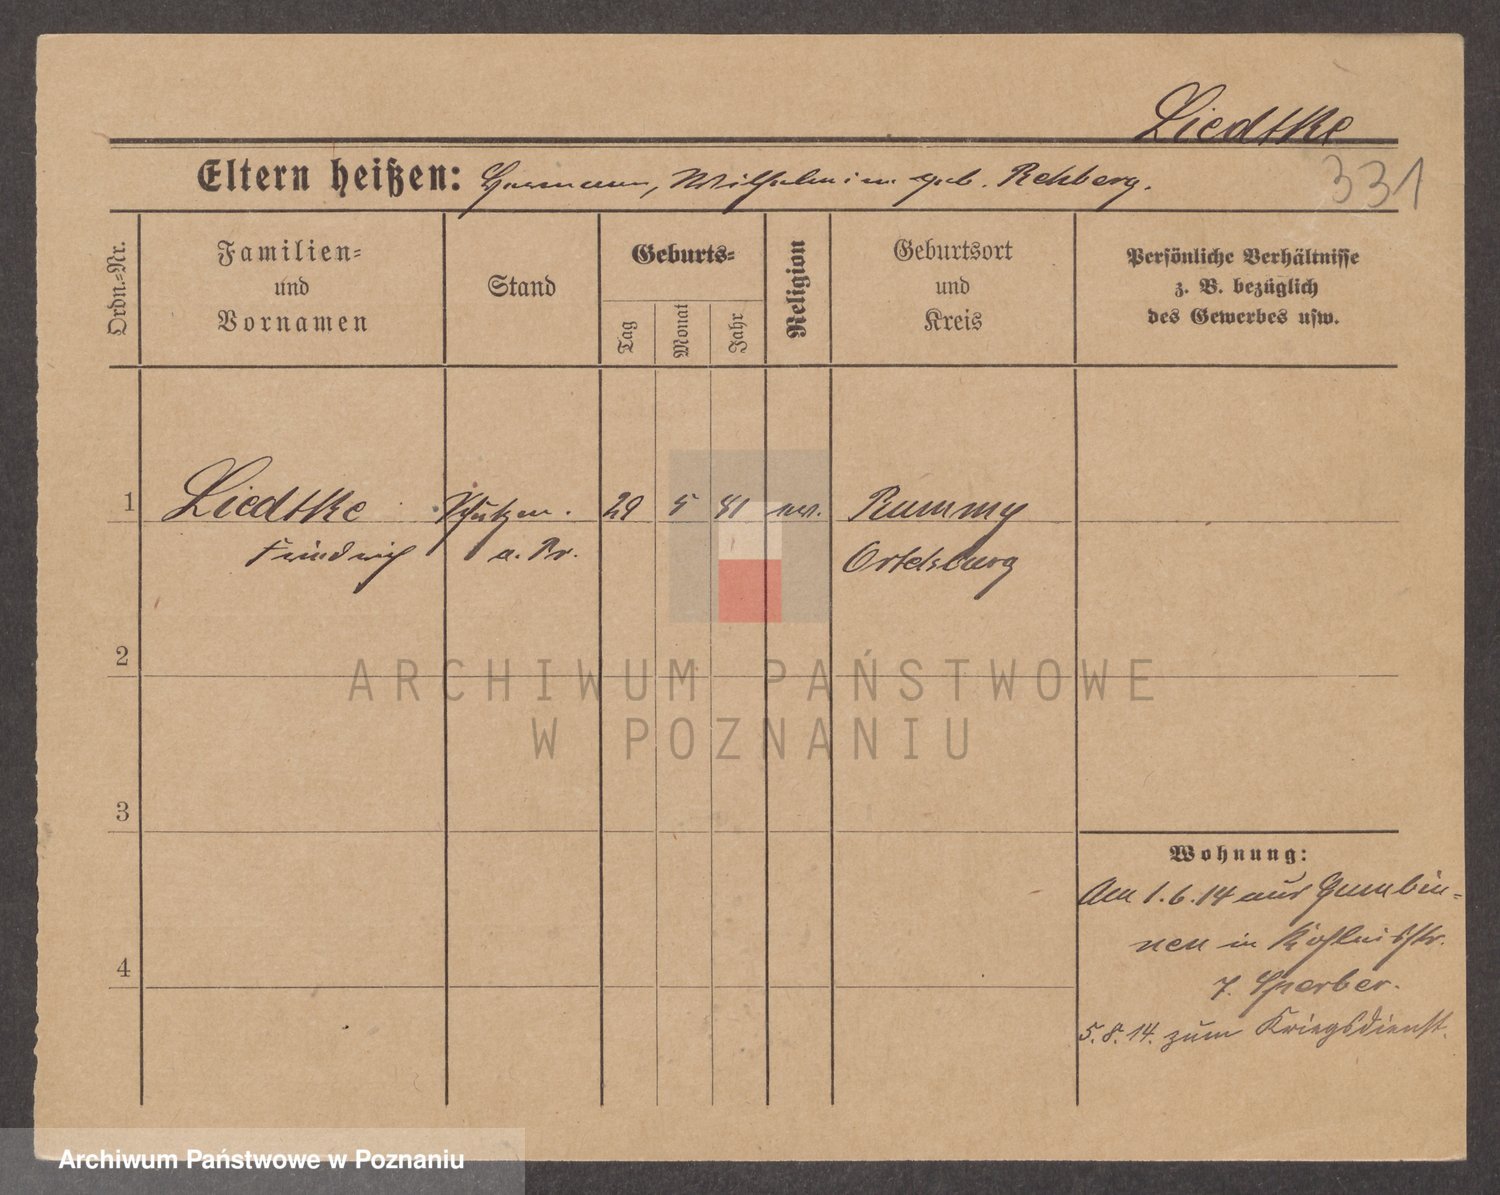 Liedtke
331
Eltern heißen: Hermann, Wilhelmine geb. Rehberg.
Ordn.-Nr.
Familien- und Vornamen
Stand
Geburts-
Tag
Monat
Jahr
Religion
Geburtsort und Kreis
Persönliche Verhältnisse
z. B. bezüglich
des Gewerbes usw.
1 Liedtke 29 5 81 ev. Rummy
Friedrich a. Pr. Ortelsburg
2
3
4
Wohnung:
Am 1.6.14 aus Gumbin-
nen in
7. Sperber.
5.8.14. zum Kriegsdienst.
ARCHIWUM PAŃSTWOWE
W POZNANIU
Archiwum Państwowe w Poznaniu